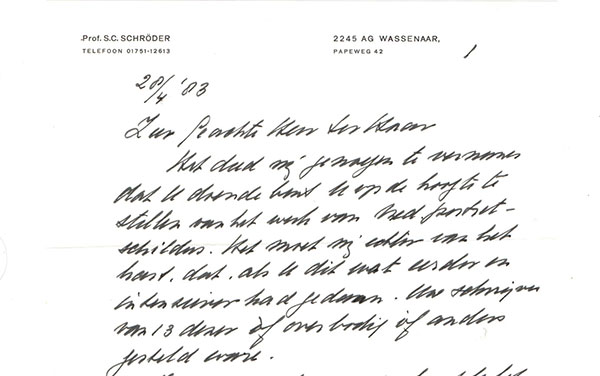 Prof. S.C. SCHRÖDER
TELEFOON 01751-12613
2245 AG WASSENAAR,
PAPEWEG 42
1
28/4 '83
Zeer Geachte Heer ter Haar
Het deed mij genoegen te vernemen
dat U doende bent U op de hoogte te
stellen van het werk van Ned portret-
schilders. Het moet mij echter van het
hart, dat, als U dit wat eerder en
intensiever had gedaan. Uw schrijven
van 13 dezer òf overbodig òf anders
gesteld ware.